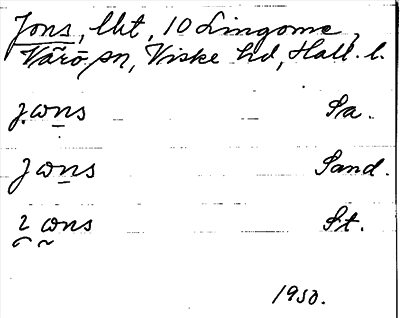 Jons, lht, 10 Lingome,
Värö sn, Viske hd, Hall. l.
jωns Sa.
jωns Sand.
ωns St.
1950.